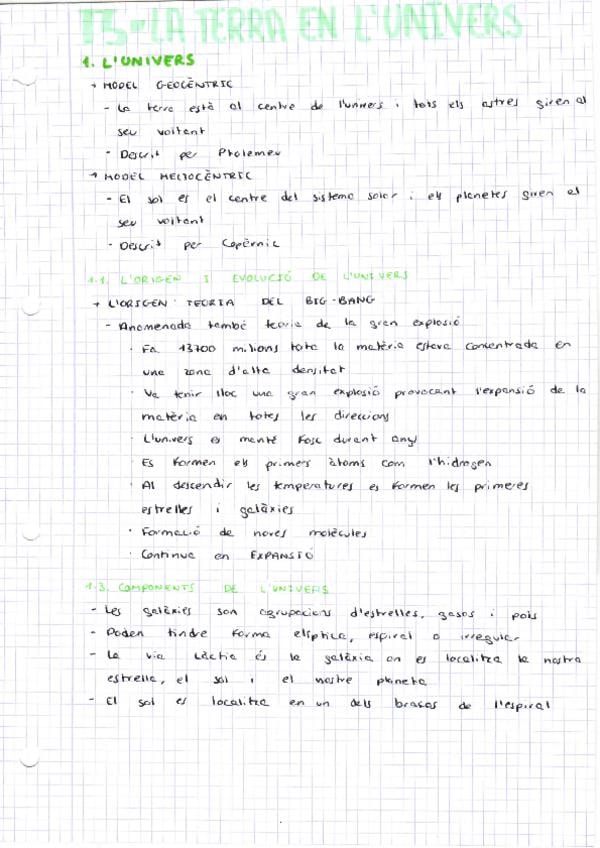 T5-LA TERRA EN L'UNIVERS
1. L'UNIVERS
→ MODEL GEOCÈNTRIC
- La terra està al centre de l'univers i tots els astres giren al
seu voltant
- Descrit per Ptolemeu
→ MODEL HELIOCÈNTRIC
- El sol es el centre del sistema solar i els planetes giren al
seu voltant
- Descrit per Copèrnic
1.1. L'ORIGEN I EVOLUCIÓ DE L'UNIVERS
→ L'ORIGEN: TEORIA DEL BIG-BANG
- Anomenada també teoria de la gran explosió
· Fa 13700 milions tota la matèria estava concentrada en
una zona d'alta densitat
· Va tenir lloc una gran explosió provocant l'expansió de la
matèria en totes les direccions
· L'univers es manté fosc durant anys
· Es formen els primers àtoms com l'hidrogen
· Al descendir les temperatures es formen les primeres
estrelles i galàxies
· Formació de noves molècules
· Continua en EXPANSIÓ
1.3. COMPONENTS DE L'UNIVERS
- Les galàxies son agrupacions d'estrelles, gasos i pols
- Poden tindre forma elíptica, espiral o irregular
- La via Làctia és la galàxia on es localitza la nostra
estrella, el sol i el nostre planeta
- El sol es localitza en un dels braços de l'espiral